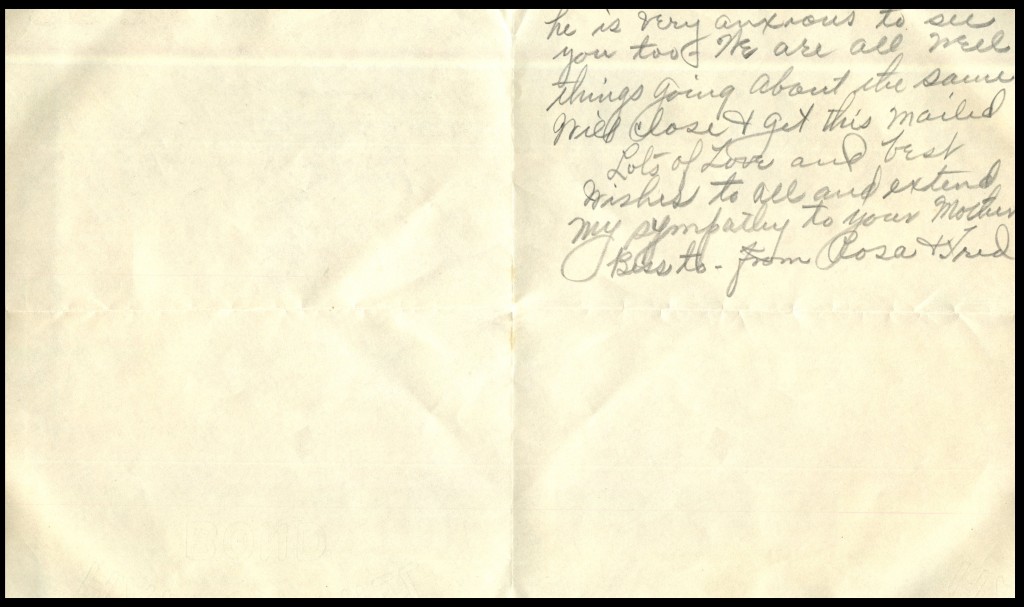 he is very anxious to see
you too - We are all well
things going about the same
Will close & get this mailed
Lots of Love and best
wishes to all and extend
my sympathy to your Mother
Bess to - from Rosa & Fred
BOND